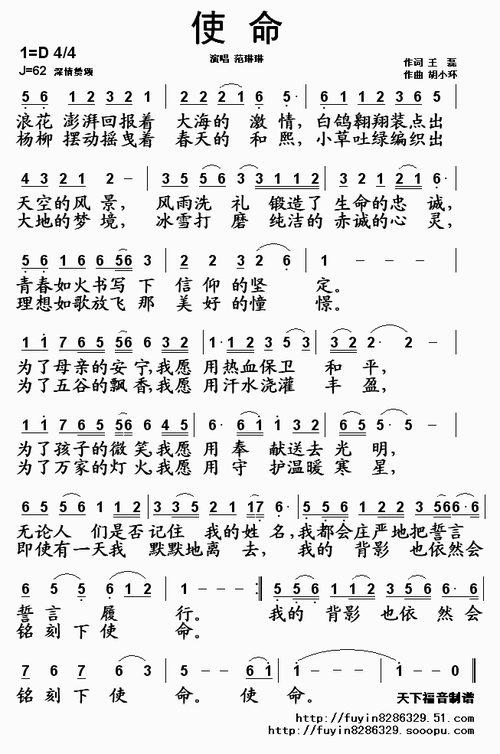 使命
1=D 4/4
演唱 范琳琳
作词 王磊
J=62 深情赞颂
作曲 胡小环
5 6 1 2 3 2 1 2 2 1 6 5· 5 1 1 2 3 5 6
浪花 澎湃回报着 大海的 激 情，白鸽翱翔装点出
杨柳 摆动摇曳着 春天的 和 熙，小草吐绿编织出
4 3 2 1 2 － 3 5 5 6 3 3 1 1 2 2 3 2 1 2 6·
天空的风 景， 风雨洗 礼 锻造了 生命的忠 诚，
大地的梦 境， 冰雪打 磨 纯洁的 赤诚的心 灵，
5 6 1 6 6 5 5 6 3 2 2 3 2 6 1 －
青春如火书写 下 信仰的坚 定。
理想如歌放飞 那 美好的憧 憬。
为了母亲的安宁，我愿 用热血保卫 和 平，
为了五谷的飘香，我愿 用汗水浇灌 丰 盈，
为了孩子的微笑，我愿 用 奉 献送去 光 明，
为了万家的灯火，我愿 用 守 护温暖 寒 星，
无论人 们是否记住 我的姓 名，我都会庄严地把誓言
即使有一天我 默默地离 去， 我的 背影 也依然会
6 5 5 6 1 2 1 － － － 5 5 6 1 1 2 3 5 6 6·
誓言 履 行。 我的 背影 也依 然 会
铭 刻 下 使 命。
7 6 7 2 1 － － － 7 6 3 1 － － － 1 － － 0
铭 刻 下 使 命。 使 命。
天下福音制谱
http://fuyin8286329.51.com
http://fuyin8286329.sooopu.com